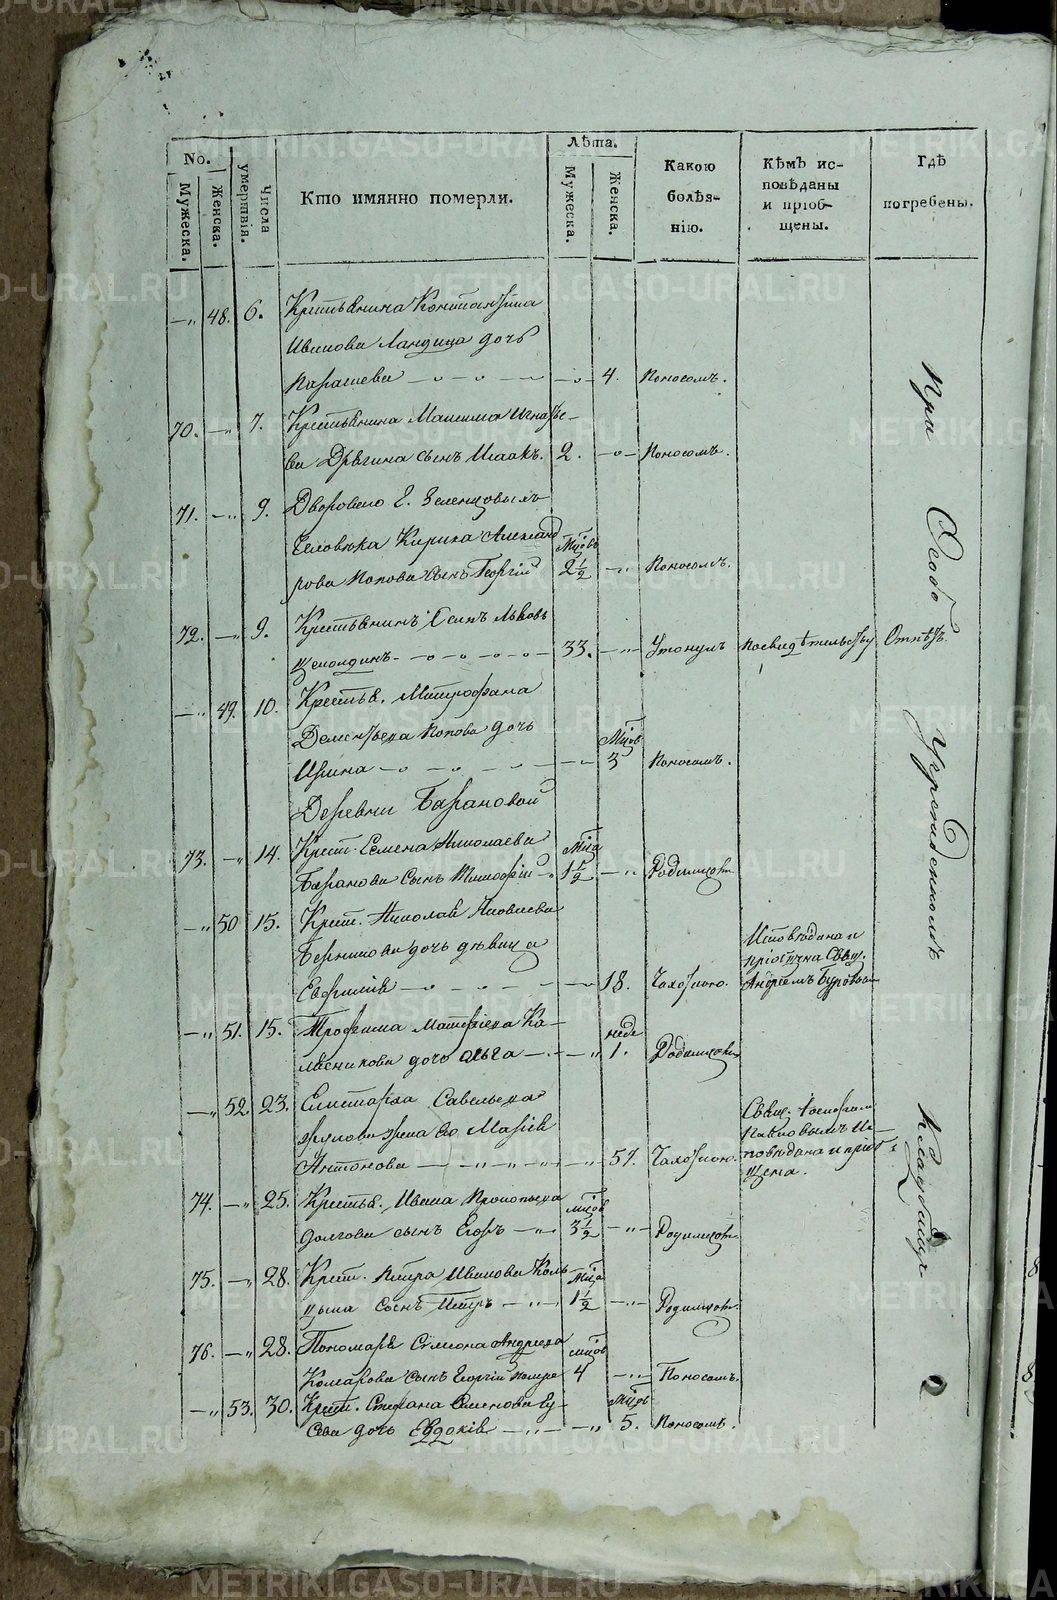 METRIKI.GASO-URAL.RU
No.
Мужеска.
Женска.
Числа умертвія.
Кто имянно померли.
Лѣта.
Мужеска.
Женска.
Какою
болѣз-
нію.
Кѣмъ ис-
повѣданы
и пріоб-
щены.
Гдѣ
погребены.
—„ 48. 6. Крестьянина Константина
Иванова дочь
4. Поносомъ.
70. —„ 7. Крестьянина Максима Игнатье-
ва сынъ Исаакъ. 2. Поносомъ.
71. —„ 9. Двороваго Г. Зеленцовыхъ
человѣка Кирила Александ
рова Попова сынъ Георгій Мцовъ 2½ —„ Поносомъ.
72. —„ 9. Крестьянинъ Львовъ
33. —„ Утонулъ Отпѣтъ.
—„ 49. 10. Крестья. Митрофана
Дементьева Попова дочь
Ирина Мцов 3 Поносомъ.
Деревни Барановой
73. —„ 14. Крест. Семена Николаева
Баранова сынъ Тимофій Мца 1½ —„ Родимцомъ
—„ 50 15. Крест. Николая Яковлева
дочь дѣвица
Евфимія 18. Чахоткою.
Исповѣдана и
пріобщена Свящ.
Андреемъ
—„ 51. 15. Трофима Матфіева Ка-
лясникова дочь Ольга неде 1. Родимцомъ
—„ 52. 23. Елистарха Савельева
жена его Марія
Антонова 57. Чахоткою.
Свящ.
Павловымъ Ис-
повѣдана и пріоб
щена.
74. —„ 25. Крестья. Ивана Прокопьева
Долгова сынъ Егоръ мцов 3½ —„ Родимцомъ
75. —„ 28. Крест. Петра Иванова Коль
цына сынъ Петръ Мца 1½ —„ Родимцомъ
76. —„ 28. Пономаря Сімеона Андреева
Комарова сынъ Георгій помре мцов 4 —„ Поносомъ.
—„ 53. 30. Крест. Стефана Семенова Гу-
сева дочь Евдокія Мцов 5. Поносомъ.
При
Особо
Учрежденномъ
Кладбище